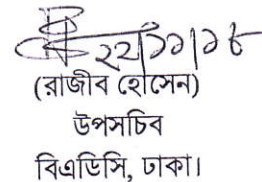 ২২/১১/১৮
(রাজীব হোসেন)
উপসচিব
বিএডিসি, ঢাকা।